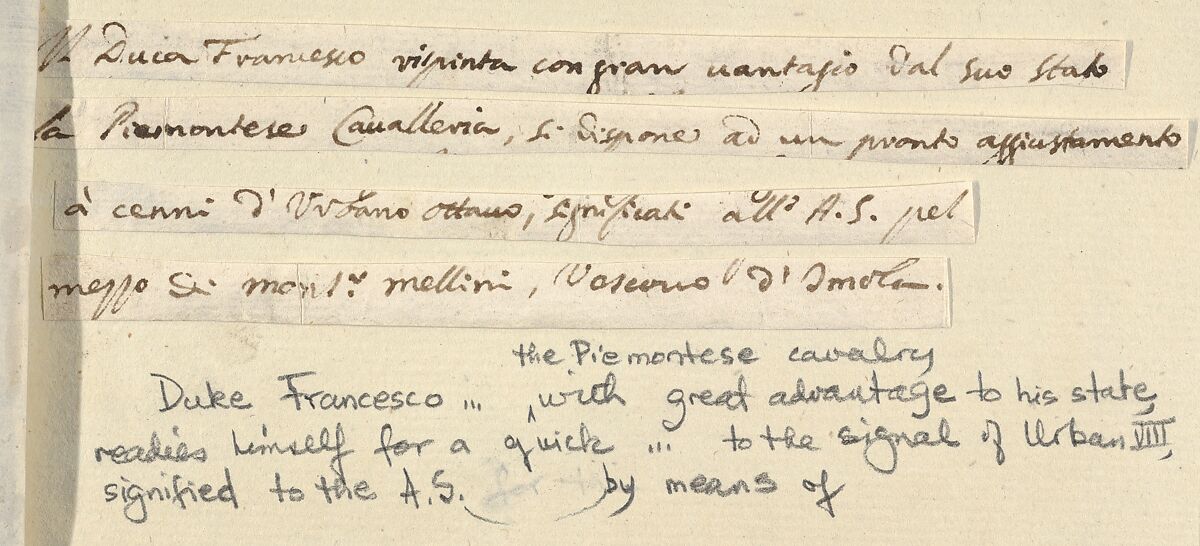 Il Duca Francesco rispinta con gran uantagio dal suo stato
la Piemontese Caualleria, si dispone ad un pronto aggiustamento
à cenni d' Vrbano ottauo, significati all' A. S. pel
mezzo di mons.r mellini, Vescouo d' Imola.
the Piemontese cavalry
Duke Francesco ... ^ with great advantage to his state,
readies himself for a quick ... to the signal of Urban VIII,
signified to the A.S. ( ) by means of